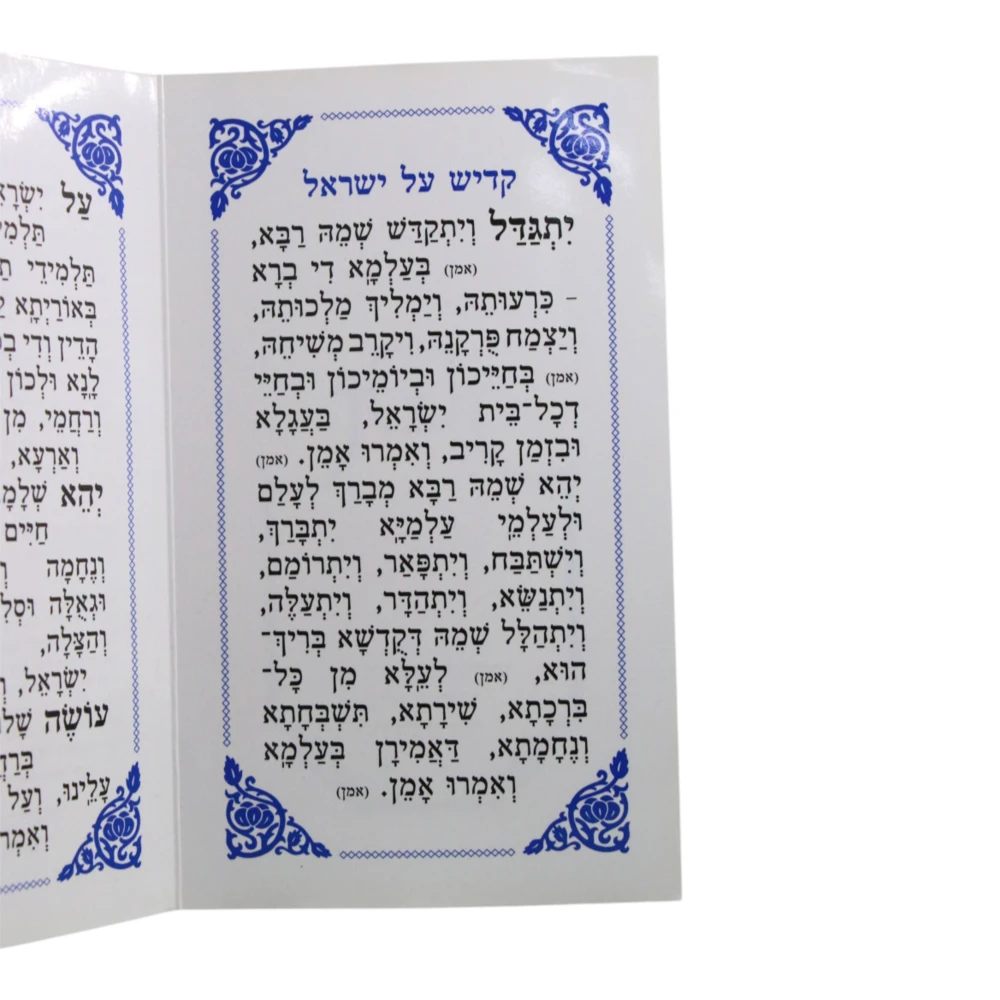 קדיש על ישראל
יִתְגַּדַּל וְיִתְקַדַּשׁ שְׁמֵהּ רַבָּא,
(אמן) בְּעָלְמָא דִּי בְרָא
– כִּרְעוּתֵהּ, וְיַמְלִיךְ מַלְכוּתֵהּ,
וְיַצְמַח פֻּרְקָנֵהּ, וִיקָרֵב מְשִׁיחֵהּ,
(אמן) בְּחַיֵּיכוֹן וּבְיוֹמֵיכוֹן וּבְחַיֵּי
דְכָל־בֵּית יִשְׂרָאֵל, בַּעֲגָלָא
וּבִזְמַן קָרִיב, וְאִמְרוּ אָמֵן. (אמן)
יְהֵא שְׁמֵהּ רַבָּא מְבָרַךְ לְעָלַם
וּלְעָלְמֵי עָלְמַיָּא יִתְבָּרַךְ,
וְיִשְׁתַּבַּח, וְיִתְפָּאַר, וְיִתְרוֹמַם,
וְיִתְנַשֵּׂא, וְיִתְהַדָּר, וְיִתְעַלֶּה,
וְיִתְהַלָּל שְׁמֵהּ דְּקֻדְשָׁא בְּרִיךְ־
הוּא, (אמן) לְעֵלָּא מִן כָּל־
בִּרְכָתָא, שִׁירָתָא, תִּשְׁבְּחָתָא
וְנֶחָמָתָא, דַּאֲמִירָן בְּעָלְמָא
וְאִמְרוּ אָמֵן. (אמן)
עַל
תַּלְמִידֵי
בְּאוֹרַיְתָא
הָדֵין וְדִי
לָנָא וּלְכוֹן
וְרַחֲמֵי, מִן
וְאַרְעָא,
יְהֵא
חַיִּים
וְנֶחָמָה
וּגְאֻלָּה
וְהַצָּלָה,
יִשְׂרָאֵל,
עוֹשֶׂה
עָלֵינוּ, וְעַל